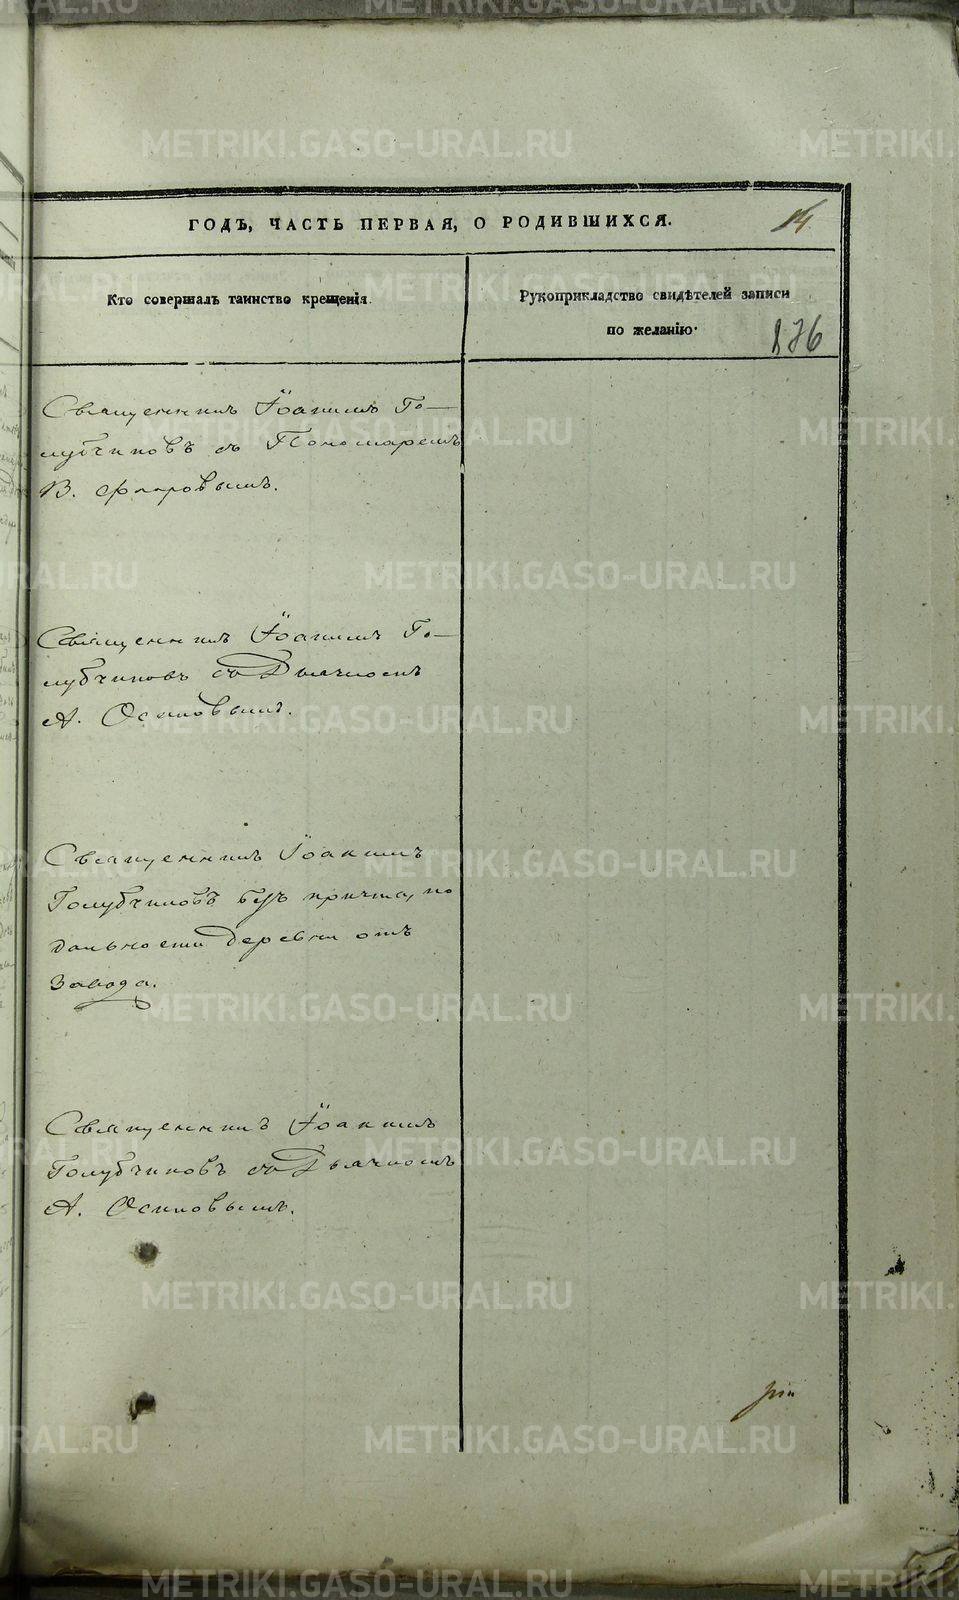 ГОДЪ, ЧАСТЬ ПЕРВАЯ, О РОДИВШИХСЯ.
14
Кто совершалъ таинство крещенія.
Рукоприкладство свидѣтелей записи
по желанію.
Священникъ Іоакимъ Го-
лубчиковъ съ Пономаремъ
В.
Священникъ Іоакимъ Го-
лубчиковъ съ Дьячкомъ
А. Осиповымъ.
Священникъ Іоакимъ
Голубчиковъ безъ причта, по
дальности деревни отъ
Завода.
Священникъ Іоакимъ
Голубчиковъ съ Дьячкомъ
А. Осиповымъ.
METRIKI.GASO-URAL.RU